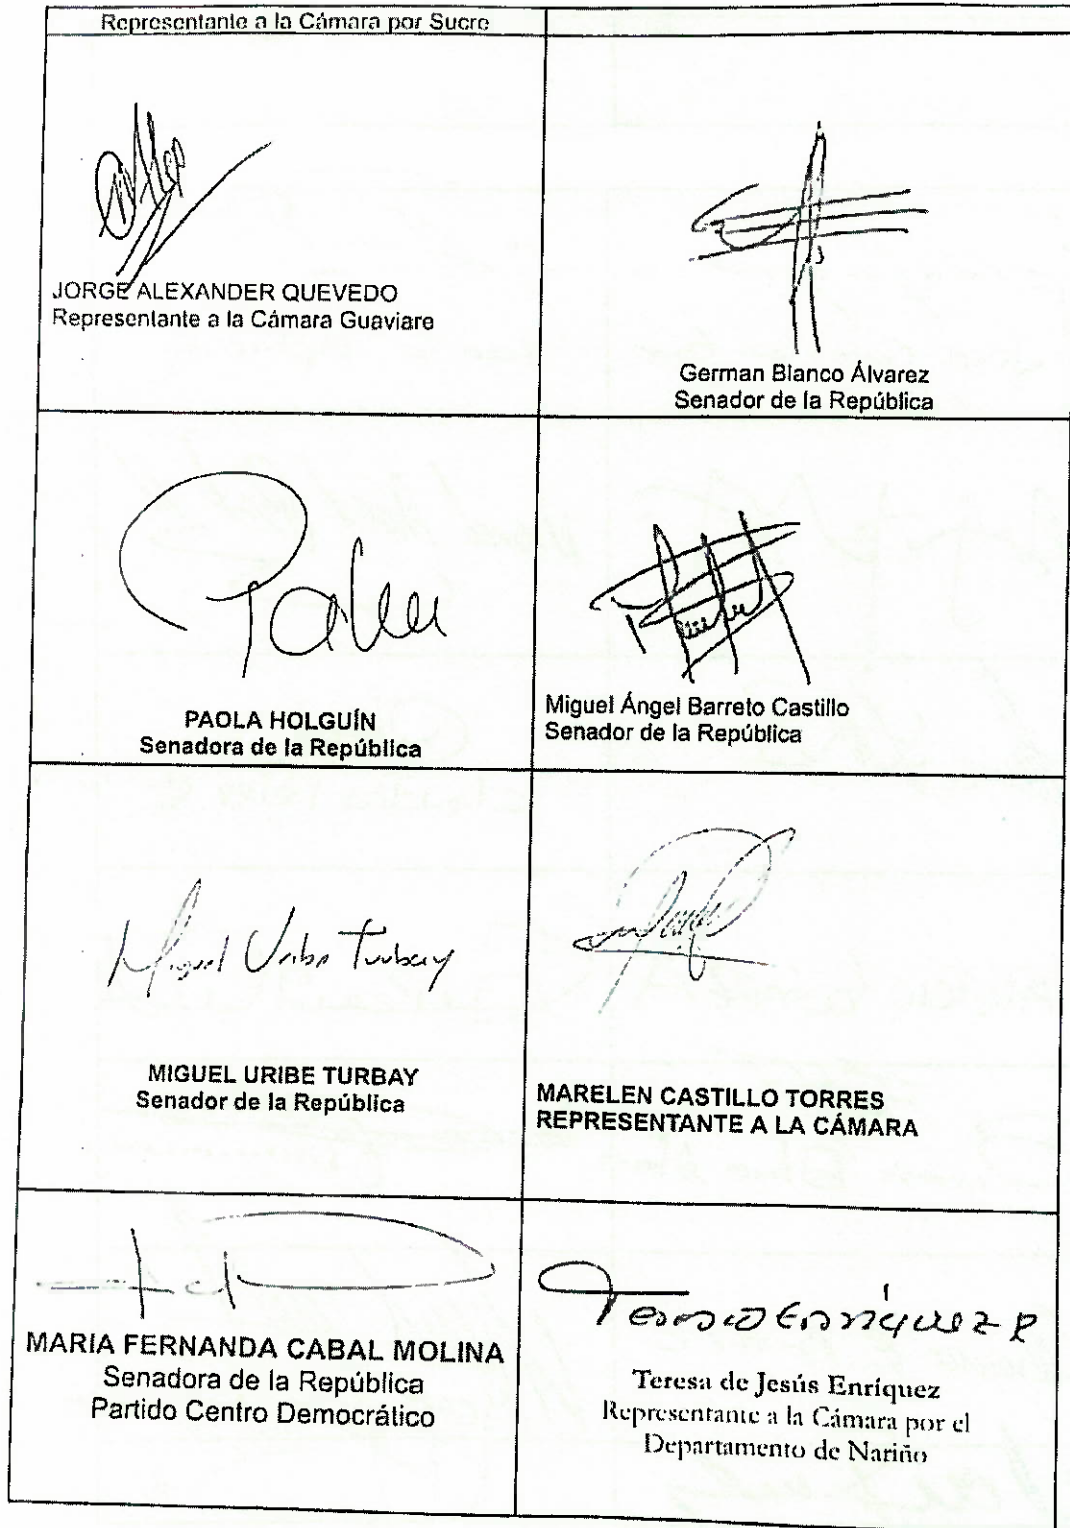 Representante a la Cámara por Sucre
JORGE ALEXANDER QUEVEDO
Representante a la Cámara Guaviare
German Blanco Álvarez
Senador de la República
Paola
PAOLA HOLGUÍN
Senadora de la República
Miguel Ángel Barreto Castillo
Senador de la República
Miguel Uribe Turbay
MIGUEL URIBE TURBAY
Senador de la República
MARELEN CASTILLO TORRES
REPRESENTANTE A LA CÁMARA
MARIA FERNANDA CABAL MOLINA
Senadora de la República
Partido Centro Democrático
Teresa Enríquez R
Teresa de Jesús Enríquez
Representante a la Cámara por el
Departamento de Nariño